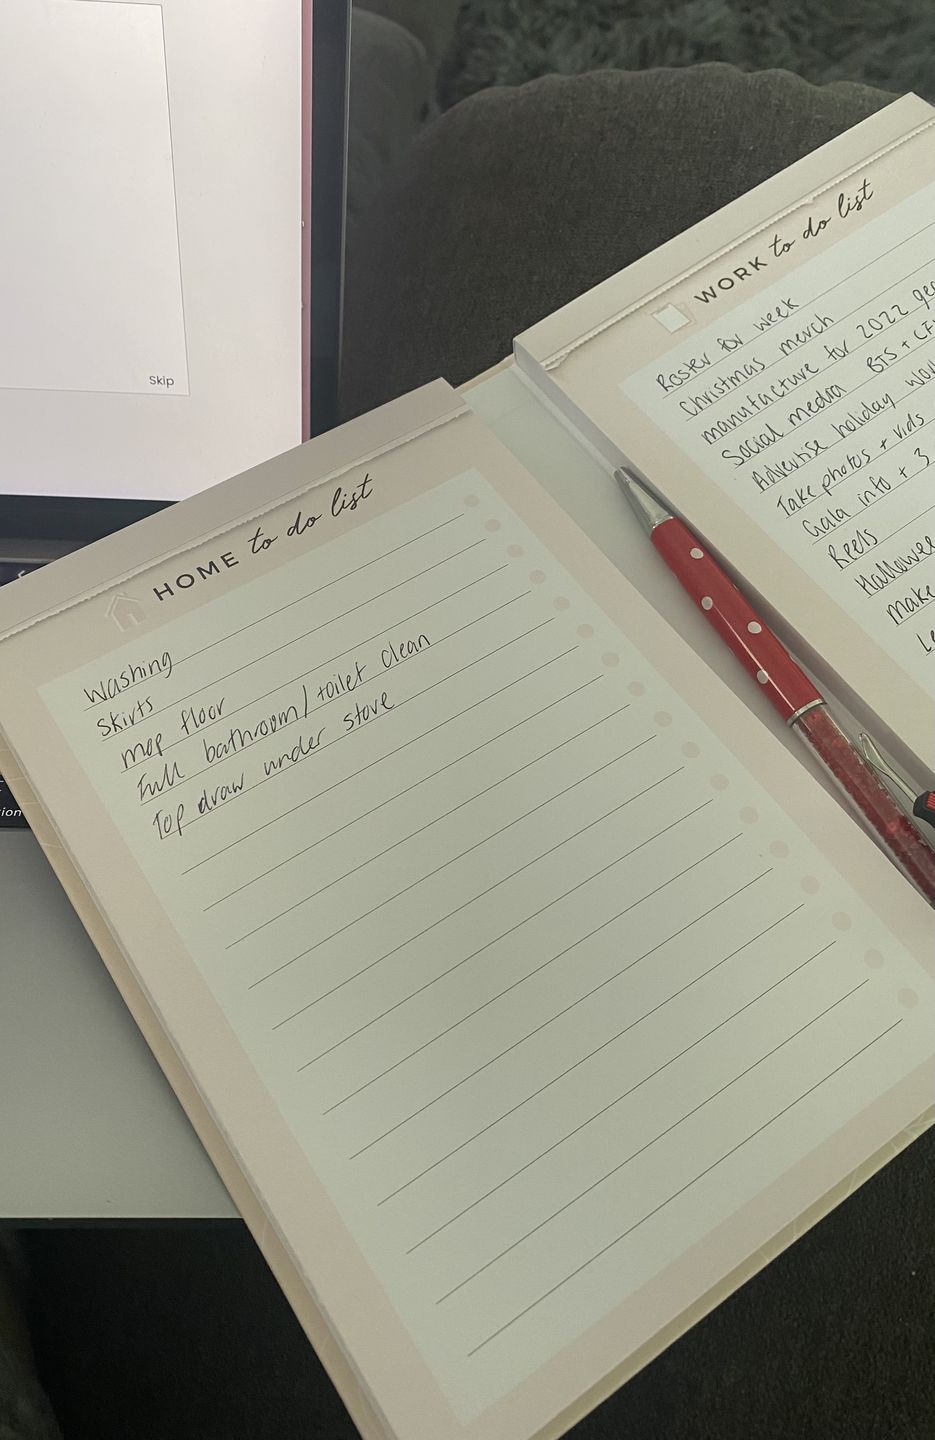 Skip
HOME to do list
Washing
Skirts
mop floor
Full bathroom/toilet clean
Top draw under stove
WORK to do list
Roster for week
Christmas merch
manufacture for 2022
Social media BTS +
Advertise holiday
Take photos + vids
Gala info + 3
Reels
make